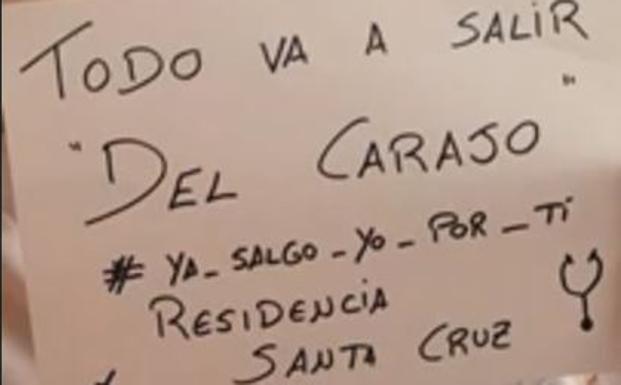 TODO VA A SALIR
"DEL CARAJO"
# YA_SALGO_YO_POR_TI
RESIDENCIA
SANTA CRUZ